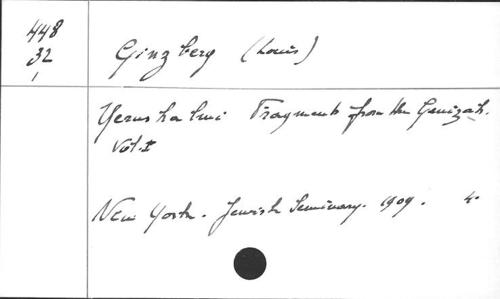 448
32
Ginzberg (Louis)
Yerushalmi Fragments from the Genizah.
Vol. I
New York. Jewish Seminary. 1909. 4.